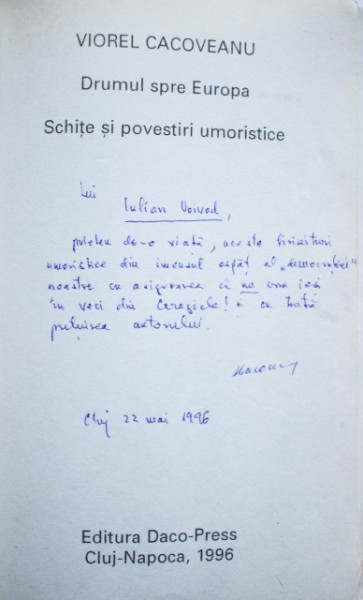 VIOREL CACOVEANU
Drumul spre Europa
Schițe și povestiri umoristice
Lui
Iulian Voivod,
prieten de-o viață, aceste
umoristice din imensul ospăț al „democrației"
noastre cu asigurarea că ne
în veci din Caragiale! - cu toată
prețuirea autorului.
Cluj 22 mai 1996
Editura Daco-Press
Cluj-Napoca, 1996